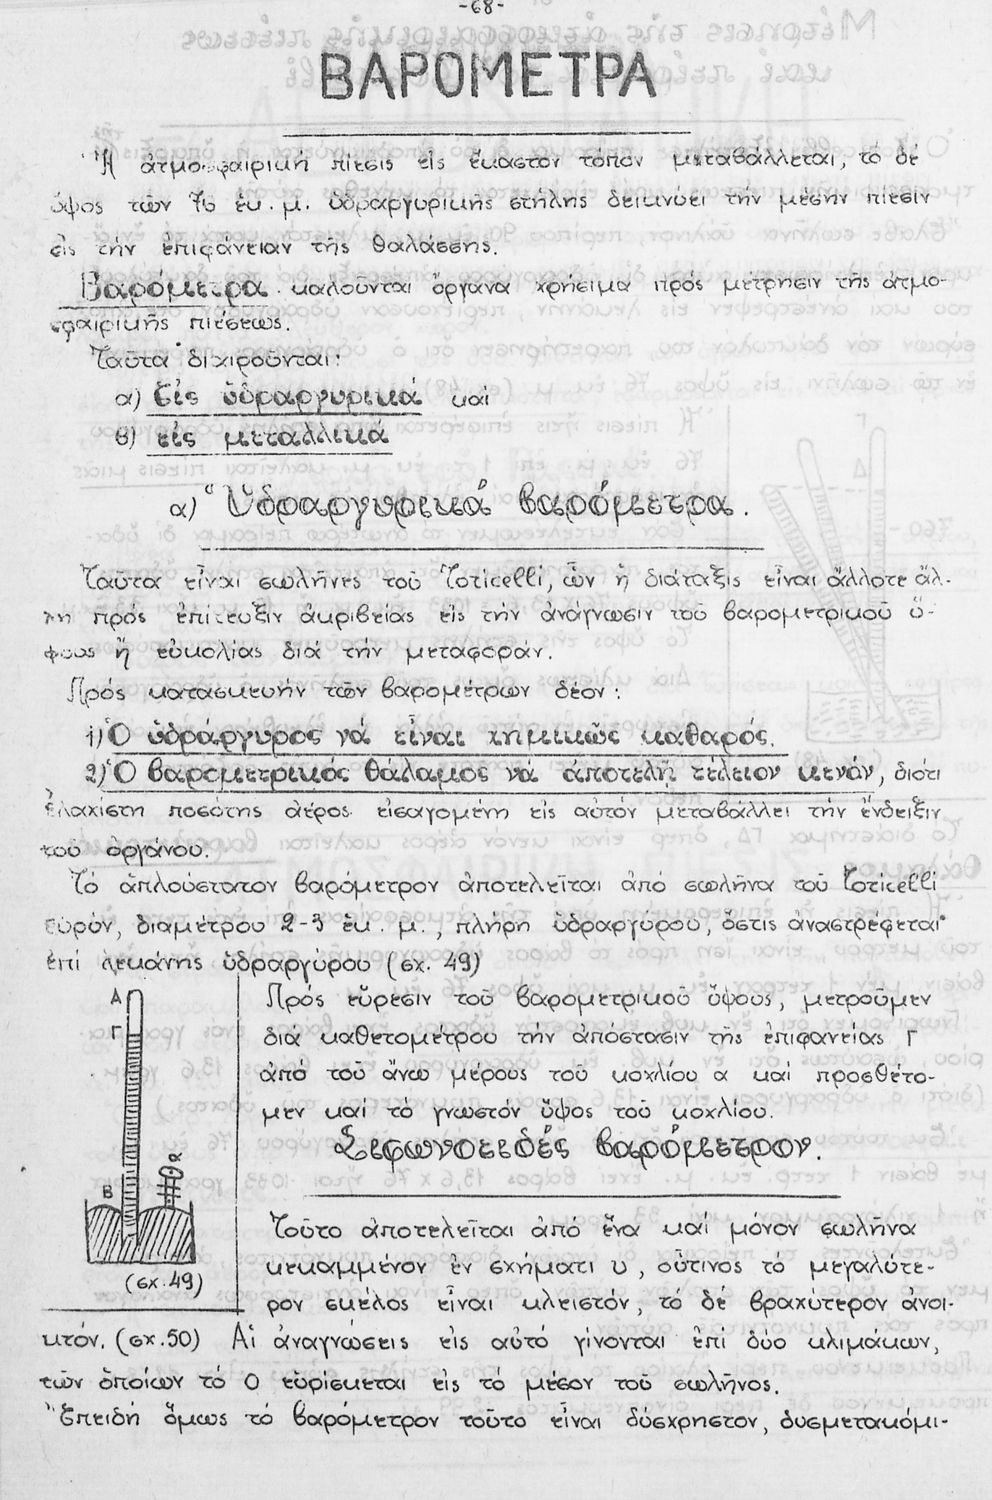 -68-
ΒΑΡΟΜΕΤΡΑ
Ἡ ἀτμοσφαιρική πίεσις εἰς ἕκαστον τόπον μεταβάλλεται, τὸ δέ
ὕψος τῶν 76 ἑκ. μ. ὑδραργυρικῆς στήλης δεικνύει τήν μέσην πίεσιν
εἰς τήν ἐπιφάνειαν τῆς θαλάσσης.
Βαρόμετρα καλοῦνται ὄργανα χρήσιμα πρός μέτρησιν τῆς ἀτμο-
σφαιρικῆς πιέσεως.
Ταῦτα διαιροῦνται:
α) Εἰς ὑδραργυρικά καί
β) εἰς μεταλλικά
α) Ὑδραργυρικά βαρόμετρα.
Ταῦτα εἶναι σωλῆνες τοῦ Toricelli, ὧν ἡ διάταξις εἶναι ἄλλοτε ἄλ-
λη πρός ἐπίτευξιν ἀκριβείας εἰς τήν ἀνάγνωσιν τοῦ βαρομετρικοῦ ὕ-
ψους ἤ εὐκολίας διά τήν μεταφοράν.
Πρός κατασκευήν τῶν βαρομέτρων δέον:
1) Ὁ ὑδράργυρος νά εἶναι χημικῶς καθαρός.
2) Ὁ βαρομετρικός θάλαμος νά ἀποτελῆ τέλειον κενόν, διότι
ἐλαχίστη ποσότης ἀέρος εἰσαγομένη εἰς αὐτόν μεταβάλλει τήν ἔνδειξιν
τοῦ ὀργάνου.
Τό ἁπλούστατον βαρόμετρον ἀποτελεῖται ἀπό σωλῆνα τοῦ Toricelli
εὐρύν, διαμέτρου 2-3 ἑκ. μ., πλήρη ὑδραργύρου, ὅστις ἀναστρέφεται
ἐπί λεκάνης ὑδραργύρου (σχ. 49)
Α
Γ
Β
α
(σχ. 49)
Πρός εὕρεσιν τοῦ βαρομετρικοῦ ὕψους, μετροῦμεν
διά καθετομέτρου τήν ἀπόστασιν τῆς ἐπιφανείας Γ
ἀπό τοῦ ἄνω μέρους τοῦ κοχλίου α καί προσθέτο-
μεν καί το γνωστόν ὕψος τοῦ κοχλίου.
Σιφωνοειδές βαρόμετρον.
Τοῦτο ἀποτελεῖται ἀπό ἕνα καί μόνον σωλῆνα
κεκαμμένον ἐν σχήματι υ, οὗτινος τό μεγαλύτε-
ρον σκέλος εἶναι κλειστόν, τό δέ βραχύτερον ἀνοι-
κτόν. (σχ. 50) Αἱ ἀναγνώσεις εἰς αὐτό γίνονται ἐπί δύο κλιμάκων,
τῶν ὁποίων τό 0 εὑρίσκεται εἰς τό μέσον τοῦ σωλῆνος.
Ἐπειδή ὅμως τό βαρόμετρον τοῦτο εἶναι δύσχρηστον, δυσμετακόμι-